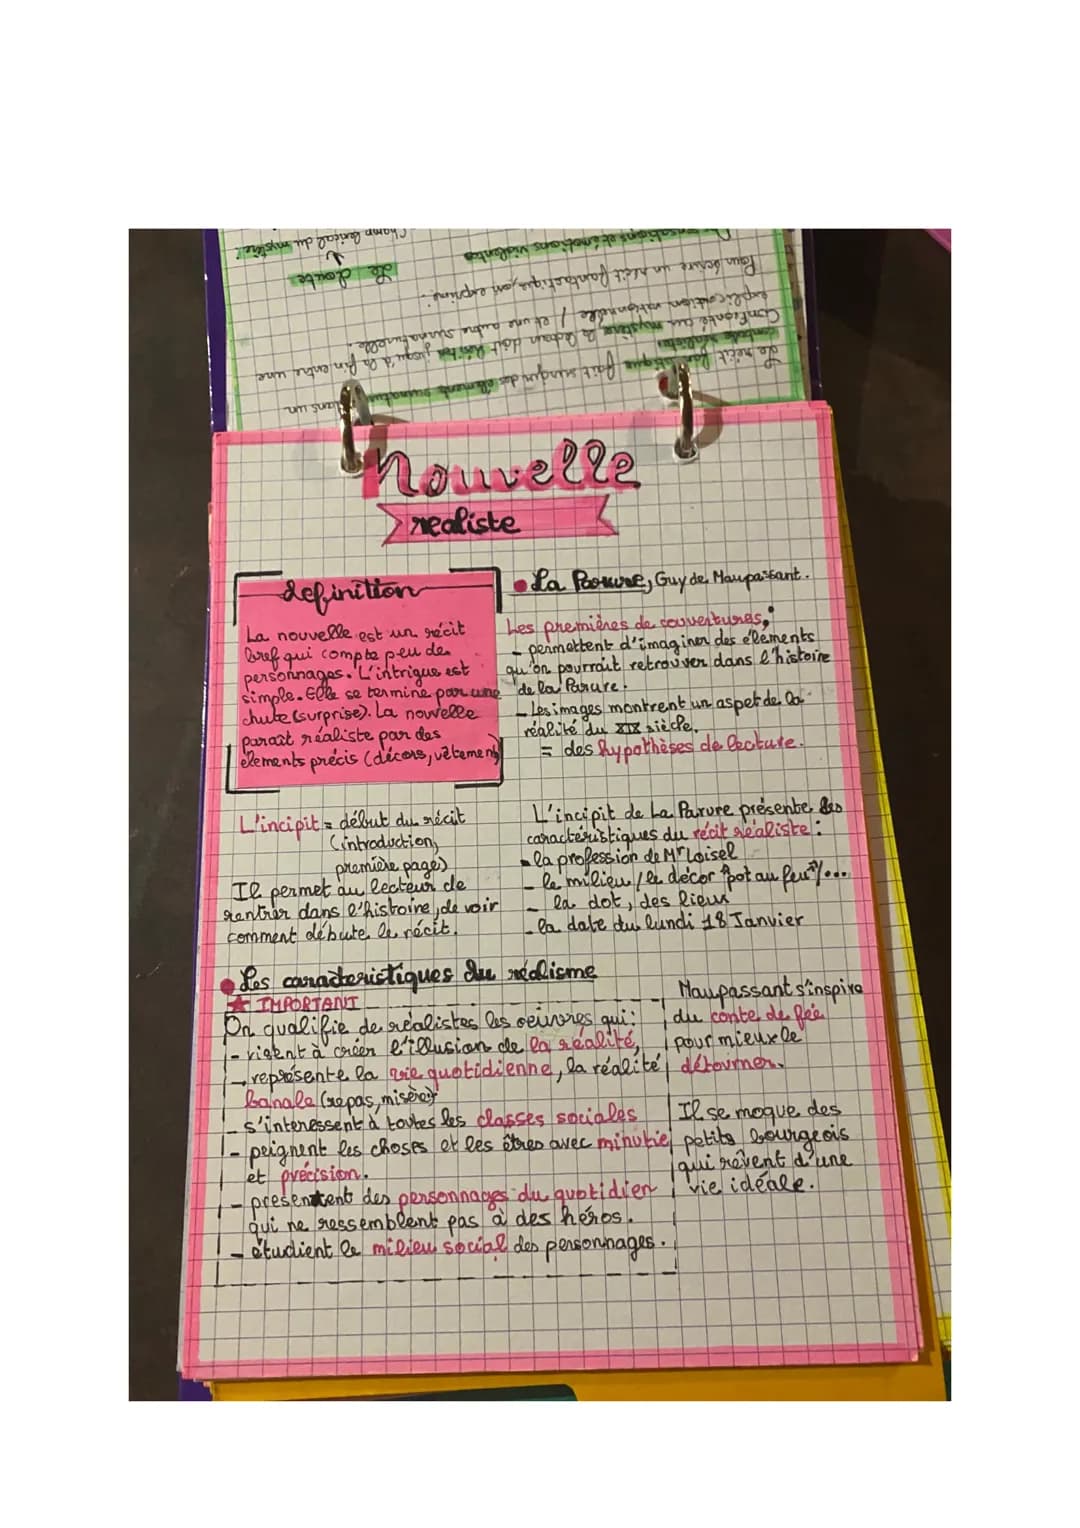 Champ lexical du mystère
Le doute
sensations et émotions violentes
Pour écrire un récit fantastique, on exprime :
explication rationnelle / et une autre surnaturelle.
Confronté au mystère le lecteur doit hésiter jusqu'à la fin entre une
Le récit fantastique fait surgir des éléments dans un
Nouvelle
realiste
definition
La nouvelle est un récit
bref qui compte peu de
personnages. L'intrigue est
simple. Elle se termine par une
chute (surprise). La nouvelle
parait réaliste par des
élements précis (décors, vêtement)
La Parure, Guy de Maupassant.
Les premières de couvertures,
- permettent d'imaginer des élements
qu'on pourrait retrouver dans l'histoire
de la Parure.
- Les images montrent un aspet de la
réalité du XIX siècle.
= des hypothèses de lecture.
L'incipit = début du récit
(introduction,
première page)
Il permet au lecteur de
rentrer dans l'histoire, de voir
comment débute le récit.
L'incipit de La Parure présente les
caractéristiques du récit réaliste :
- la profession de Mr Loisel
- le milieu / le décor "pot au feu"/...
- la dot, des lieux
- la date du lundi 18 Janvier
Les caracteristiques du réalisme
★ IMPORTANT
On qualifie de réalistes les oeuvres qui :
- visent à créer l'illusion de la réalité,
- représente la vie quotidienne, la réalité
banale (repas, misère)
- s'interessent à toutes les classes sociales
- peignent les choses et les êtres avec minutie
et précision.
- presentent des personnages du quotidien
qui ne ressemblent pas à des héros.
- étudient le milieu social des personnages.
Maupassant s'inspire
du conte de fée
pour mieux le
détourner.
Il se moque des
petits bourgeois
qui rêvent d'une
vie idéale.